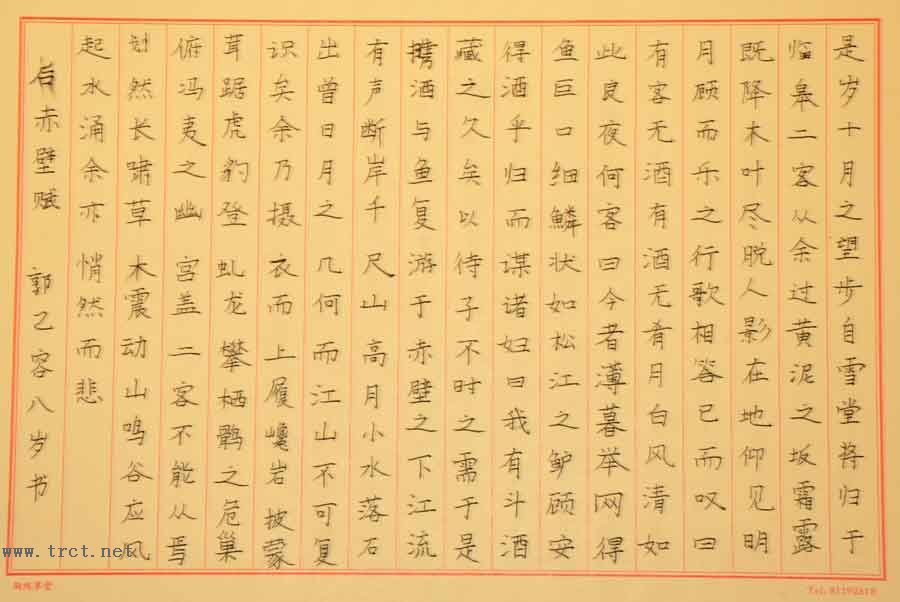 是岁十月之望步自雪堂将归于
临皋二客从余过黄泥之坂霜露
既降木叶尽脱人影在地仰见明
月顾而乐之行歌相答已而叹曰
有客无酒有酒无肴月白风清如
此良夜何客曰今者薄暮举网得
鱼巨口细鳞状如松江之鲈顾安
得酒乎归而谋诸妇曰我有斗酒
藏之久矣以待子不时之需于是
携酒与鱼复游于赤壁之下江流
有声断岸千尺山高月小水落石
出曾日月之几何而江山不可复
识矣余乃摄衣而上履巉岩披蒙
茸踞虎豹登虬龙攀栖鹘之危巢
俯冯夷之幽宫盖二客不能从焉
划然长啸草木震动山鸣谷应风
起水涌余亦悄然而悲
后赤壁赋 郭乙容八岁书
www.trct.net